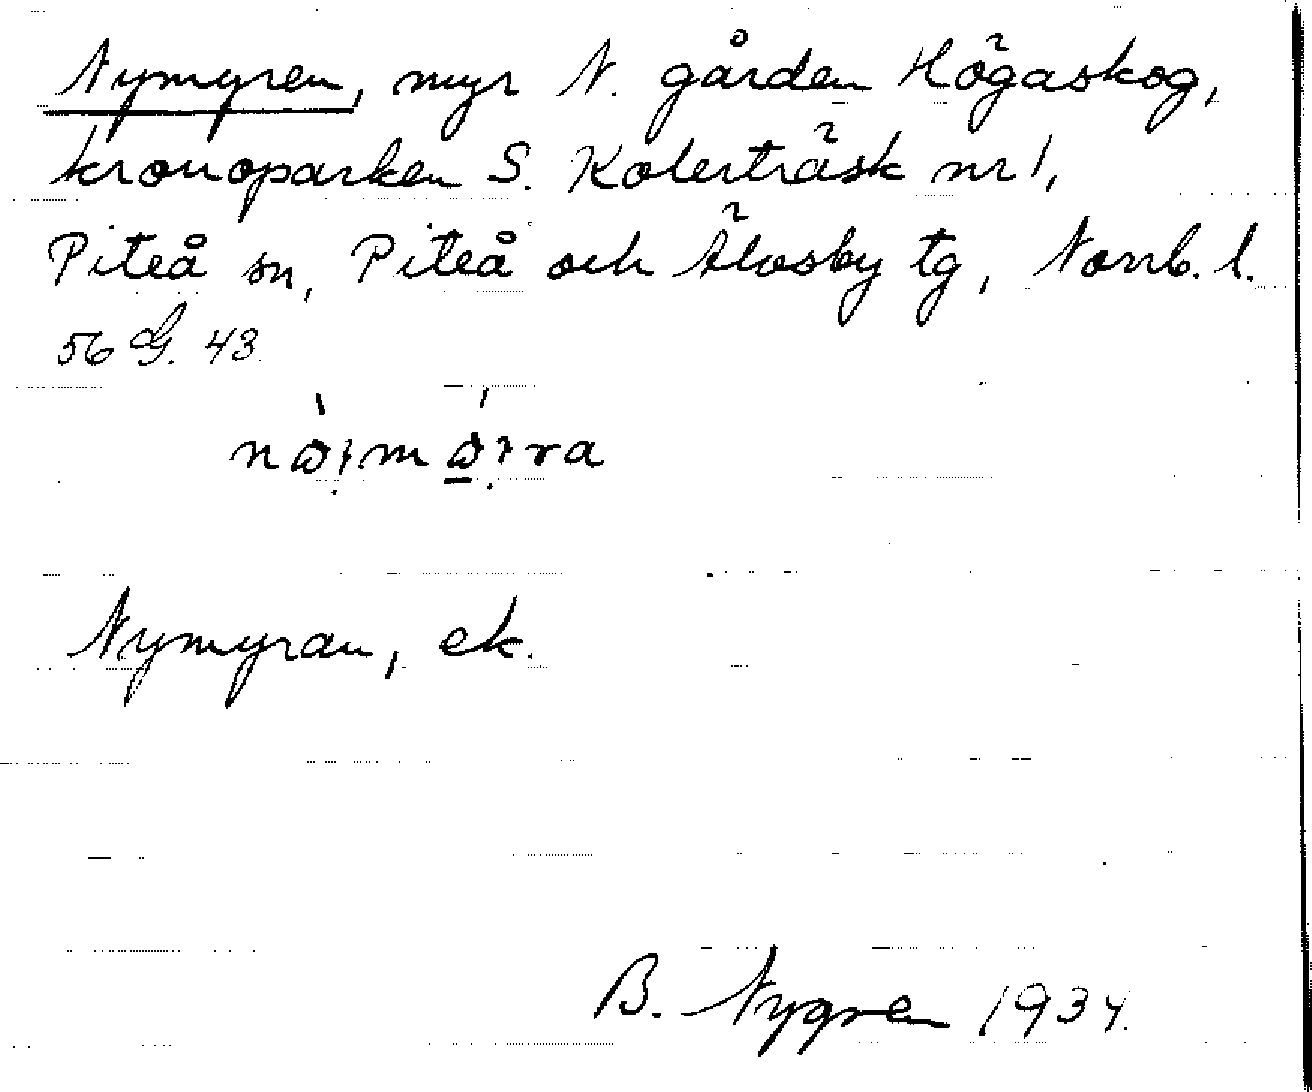 Nymyren, myr N. gården Högaskog,
kronoparken S. Kolerträsk nr 1,
Piteå sn, Piteå och Älvsby tg, Norrb. l.
56 G. 43.
Nymyran, ek.
B. Nygren 1934.